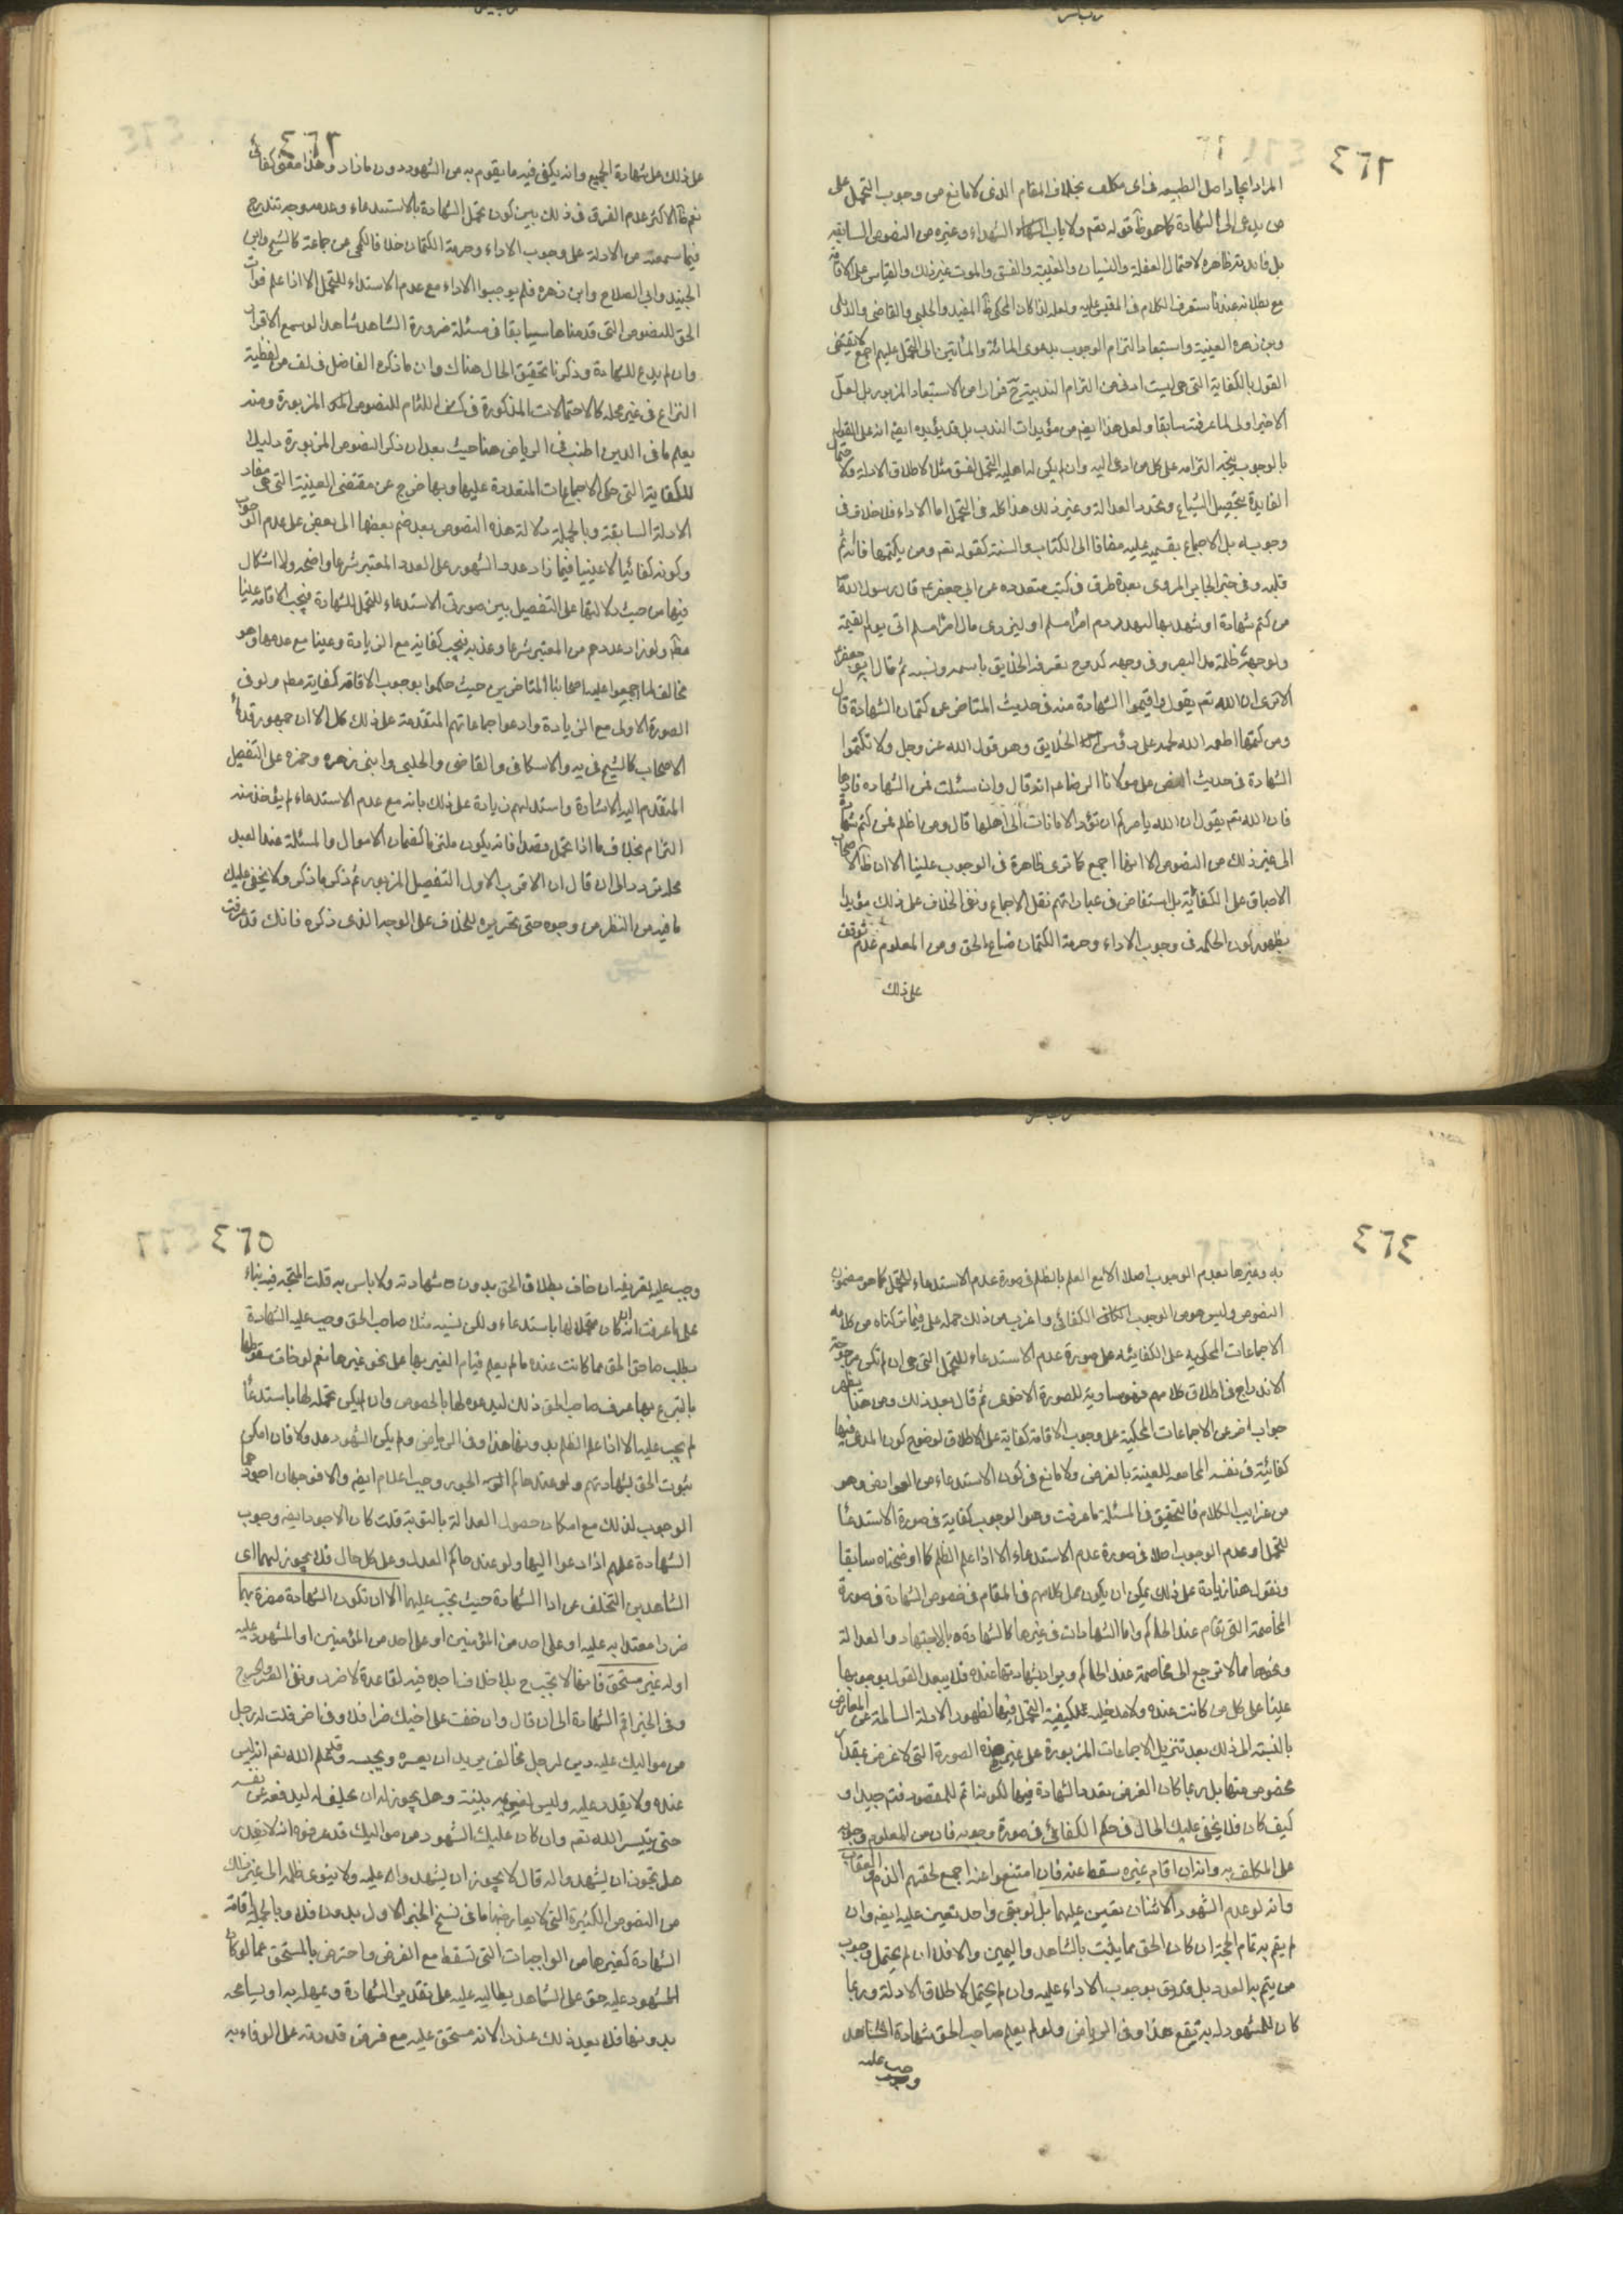 ٤٦٢
المراد ايجاد اصل الطبيعه في اي مكلف بخلاف المقام الذي لا مانع من وجوب التحمل على
من يدعى الى الشهادة كما هو ظ قوله تعم ولا ياب الشهداء وغيره من النصوص السابقه
بل فائدته ظاهرة لاحتمال الغفلة والنسيان والغيبة والفسق والموت غير ذلك والقياس على الاقامة
مع بطلانه عندنا ستعرف الكلام في المقيس عليه ولعله لذا كان المحكي ظ المفيد والحلبي والقاضي والديلمي
وبن زهره العينية واستبعاد التزام الوجوب بدعوى المائة والمأتين الى التحمل عليهم اجمع لا يقتضى
القول بالكفاية التي هي ليست ادنى من التزام الندبية ح فرارا من الاستبعاد المزبور بل لعل
الاخير اولى لما عرفت سابقا ولعل هذا ايضا من مؤيدات الندب بل قد يؤيده ايضا انه على القول
بالوجوب يتجه التزامه على كل من ادعى اليه وان لم يكن له اهلية التحمل لفسق مثلا لاطلاق الادلة ولاحتمال
الفايدة بتحصيل الشياع وتجدد العدالة وغير ذلك هذا كله في التحمل اما الاداء فلا خلاف في
وجوبه بل الاجماع بقسميه عليه مضافا الى الكتاب والسنة كقوله تعم ومن يكتمها فانه آثم
قلبه وفي خبر الجابر المروي بعدة طرق في كتب متعدده عن ابي جعفر ع قال رسول الله ص
من كتم شهادة او شهد بها ليهدر دم امرء مسلم او ليزوى مال امرء مسلم اتى يوم القيمة
ولوجهه ظلمة مد البصر وفي وجهه كدوح تعرفه الخلايق باسمه ونسبه ثم قال ابو جعفر
الا ترى ان الله تعم يقول واقيموا الشهادة منه في حديث المناهي عن كتمان الشهادة قال
ومن كتمها اطعمه الله لحمه على رؤس الخلايق وهو قول الله عز وجل ولا تكتموا
الشهادة في حديث النص على مولانا الرضا ع انه قال وان سئلت عن الشهاده فادها
فان الله تعم يقول ان الله يامركم ان تؤد الامانات الى اهلها قال ومن اظلم ممن كتم شهادة
الى غير ذلك من النصوص الا انها اجمع كما ترى ظاهرة في الوجوب علينا الا ان ظ الاصحاب
الاطباق على الكفائية بل استفاض في عباداتهم نقل الاجماع ونفى الخلاف على ذلك مؤيدا
بظهور كون الحكمه في وجوب الاداء وحرمة الكتمان ضياع الحق ومن المعلوم عدم توقف
على ذلك
٤٦٣
على ذلك على شهادة الجميع وانه يكفى فيه ما يقوم به من الشهود دون ما زاد وهذا معنى كفائي
نعم ظ الاكثر عدم الفرق في ذلك بين كون تحمل الشهادة بالاستدعاء وعدمه وجه تندرج
فيما سمعته من الادلة على وجوب الاداء وحرمة الكتمان خلافا للمحكي عن جماعة كالشيخ وابن
الجنيد وابي الصلاح وابن زهره فلم يوجبوا الاداء مع عدم الاستدعاء للتحمل الا اذا علم فوات
الحق للنصوص التي قدمناها سابقا في مسئلة ضرورة الشاهد شاهدا لو سمع الاقرار
وان لم يدع للشهادة وذكرنا تحقيق الحال هناك وان ما ذكره الفاضل في لف من لفظية
النزاع في غير محله كالاحتمالات المذكورة في كشف اللثام للنصوص المزبورة ومنه
يعلم ما في الذين اطنب في الرياض هنا حيث بعد ان ذكر النصوص المزبورة دليلا
للكفاية التي حكى الاجماعات المتعددة عليها وبها خرج عن مقتضى العينية التي هي مفاد
الادلة السابقة وبالجملة دلالة هذه النصوص بعد ضم بعضها الى بعض على عدم الوجوب
وكونه كفائيا لا عينيا فيما زاد عدد الشهود على العدد المعتبر شرعا واضحه ولا اشكال
فيها من حيث دلالتها على التفصيل بين صورتي الاستدعاء للتحمل للشهادة فيجب الاقامة علينا
مطم ولو زاد عددهم من المعتبر شرعا وعدمه فيجب كفاية مع الزيادة وعينا مع عدمها وهو
مخالف لما اجمعوا عليه اصحابنا المتاخرين حيث حكموا بوجوب الاقامة كفاية مطم ولو في
الصورة الاولى مع الزيادة وادعوا اجماعاتهم المتقدمة على ذلك كل الا ان جمهور قدماء
الاصحاب كالشيخ في يه والاسكافي والقاضي والحلبي وابني زهره وحمزه على التفصيل
المتقدم اليه الاشارة واستدلهم زيادة على ذلك بانه مع عدم الاستدعاء لم يؤخذ منه
التزام بخلاف ما اذا تحمل قصدا فانه يكون ملتزما كضمان الاموال والمسئلة عند العبد
محل تردد الى ان قال ان الاقرب الاول التفصيل المزبور ثم ذكر ما ذكر ولا يخفى عليك
ما فيه من النظر من وجوه حتى تحريره للخلاف على الوجه الذي ذكره فانك قد عرفت
٤٦٤
به وغيرها بعدم الوجوب اصلا الا مع العلم بالظلم في صورة عدم الاستدعاء للتحمل كما هو مضمون
النصوص وليس هو من الوجوب الكفائي واغرب من ذلك حمله على فيما تركناه من كلامه
الاجماعات المحكيه على الكفائية على صورة عدم الاستدعاء للتحمل التي هي ان لم تكن مرجوحة
الاندراج في اطلاق كلامهم فهو مساوية للصورة الاخرى ثم قال بعد ذلك ومن هنا يظهر
جواب اخر عن الاجماعات المحكية على وجوب الاقامة كفاية على الاطلاق لوضوح كون المدعى فيها
كفائية في نفسه المجامعه للعينية بالعرض ولا مانع في كون الاستدعاء من العوارض وهو
من غرايب الكلام فالتحقيق في المسئلة ما عرفت وهو الوجوب كفاية في صورة الاستدعاء
للتحمل او عدم الوجوب اصلا في صورة عدم الاستدعاء الا اذا علم الظلم كما اوضحناه سابقا
ونقول هنا زيادة على ذلك يمكن ان يكون محل كلامهم في المقام في خصوص الشهادة في صورة
المخاصمة التي تقام عند الحاكم واما الشهادات في غيرها كالشهادة بالاجتهاد والعدالة
ونحوها مما لا ترجع الى مخاصمة عند الحاكم ويراد شهادتها عنده فلا يبعد القول بوجوبها
علينا على كل من كانت عنده ولا مدخلية لكيفية التحمل فيها لظهور الادلة السالمة عن المعارض
بالنسبة الى ذلك بعد تنزيل الاجماعات المزبورة على غير هذه الصورة التي لا غرض بعقد
مخصوص منها بل ربما كان الغرض بعدد الشهادة فيها لكونها اتم للمقصود فتم جيدا و
كيف كان فلا يخفى عليك الحال في حكم الكفائي في صورة وجوبه فان من المعلوم وجوبه
على المكلف به وانه ان اقام غيره سقط عنه فان امتنعوا عنه اجمع لحقهم الذم والعقاب
وانه لو عدم الشهود الا اثنان تعين عليهما بل لو بقى واحد تعين عليه ايضا وان
لم يتم به تمام الحجة ان كان الحق مما يثبت بالشاهد واليمين والا فلا ان لم يحتمل وجوب
من يتم به العدد بل قد يق بوجوب الاداء عليه وان لم يحتمل لاطلاق الادلة وربما
كان للمشهود له به توقع هذا وفي الرياض ولو لم يعلم صاحب الحق بشهادة الشاهد
وجب عليه
٤٦٥
وجب عليه تعريفه ان خاف بطلان الحق بدون شهادته ولا باس به قلت المتجه فيه بناء
على ما عرفت انه ان كان متحملا لها باستدعاء ولكن نسيه مثلا صاحب الحق وجب عليه الشهادة
بطلب صاحب الحق مما كانت عنده ما لم يعلم قيام الغير بها على نحو غيرها نعم لو خاف سقوطها
بالتبرع بها عرف صاحب الحق ذلك ليدعوه لها بالخصوص وان لم يكن تحمله لها باستدعاء
لم يجب عليه الا اذا علم الظلم بدونها هذا وفي الرياض ولم يكن الشهود عدولا فان امكن
ثبوت الحق بشهادتهم ولو عند حاكم الجور وجب اعلام ايضا والا فوجهان اجودهما
الوجوب لذلك مع امكان حصول العدالة بالتوبة قلت كان الاجود ايضا وجوب
الشهادة عليهم اذا دعوا اليها ولو عند حاكم العدل وعلى كل حال فلا يجوز لهما اى
الشاهدين التخلف عن ادا الشهادة حيث تجب عليهما الا ان تكون الشهادة مضرة بهما
ضررا معتدا به عليه او على احد من المؤمنين او على احد من المؤمنين او المشهود عليه
او له غير مستحق فانها لا تجب ح بلا خلاف اجده فيه لقاعدة لا ضرر ونفى العسر والحرج
وفي الخبر اقم الشهادة الى ان قال وان خفت على اخيك ضرا فلا وفي اخر قلت له رجل
من مواليك عليه دين لرجل مخالف يريد ان يعسره ويحبسه وقد علم الله تعم انه ليس
عنده ولا يقدر عليه وليس لغريمه بينة وهل يجوز له ان يحلف له ليدفعه عن نفسه
حتى ييسر الله تعم وان كان عليك الشهود من مواليك قد عرفوه انه لا يقدر
هل يجوز ان يشهدوا له قال لا يجوز ان يشهدوا عليه ولا ينوى ظلمه الى غير ذلك
من النصوص الكثيرة التي لا يعارضها ما في نسخ الخبر الاول بدون فلا وبالجملة اقامة
الشهادة كغيرها من الواجبات التي تسقط مع الضرر واحترض بالمستحق عما لو كان
المشهود عليه حق على الشاهد يطالبه عليه على تقدير الشهادة ويمهله به او يسامحه
بدونها فلا يعد ذلك عذرا لانه مستحق عليه مع فرض قدرته على الوفاء به